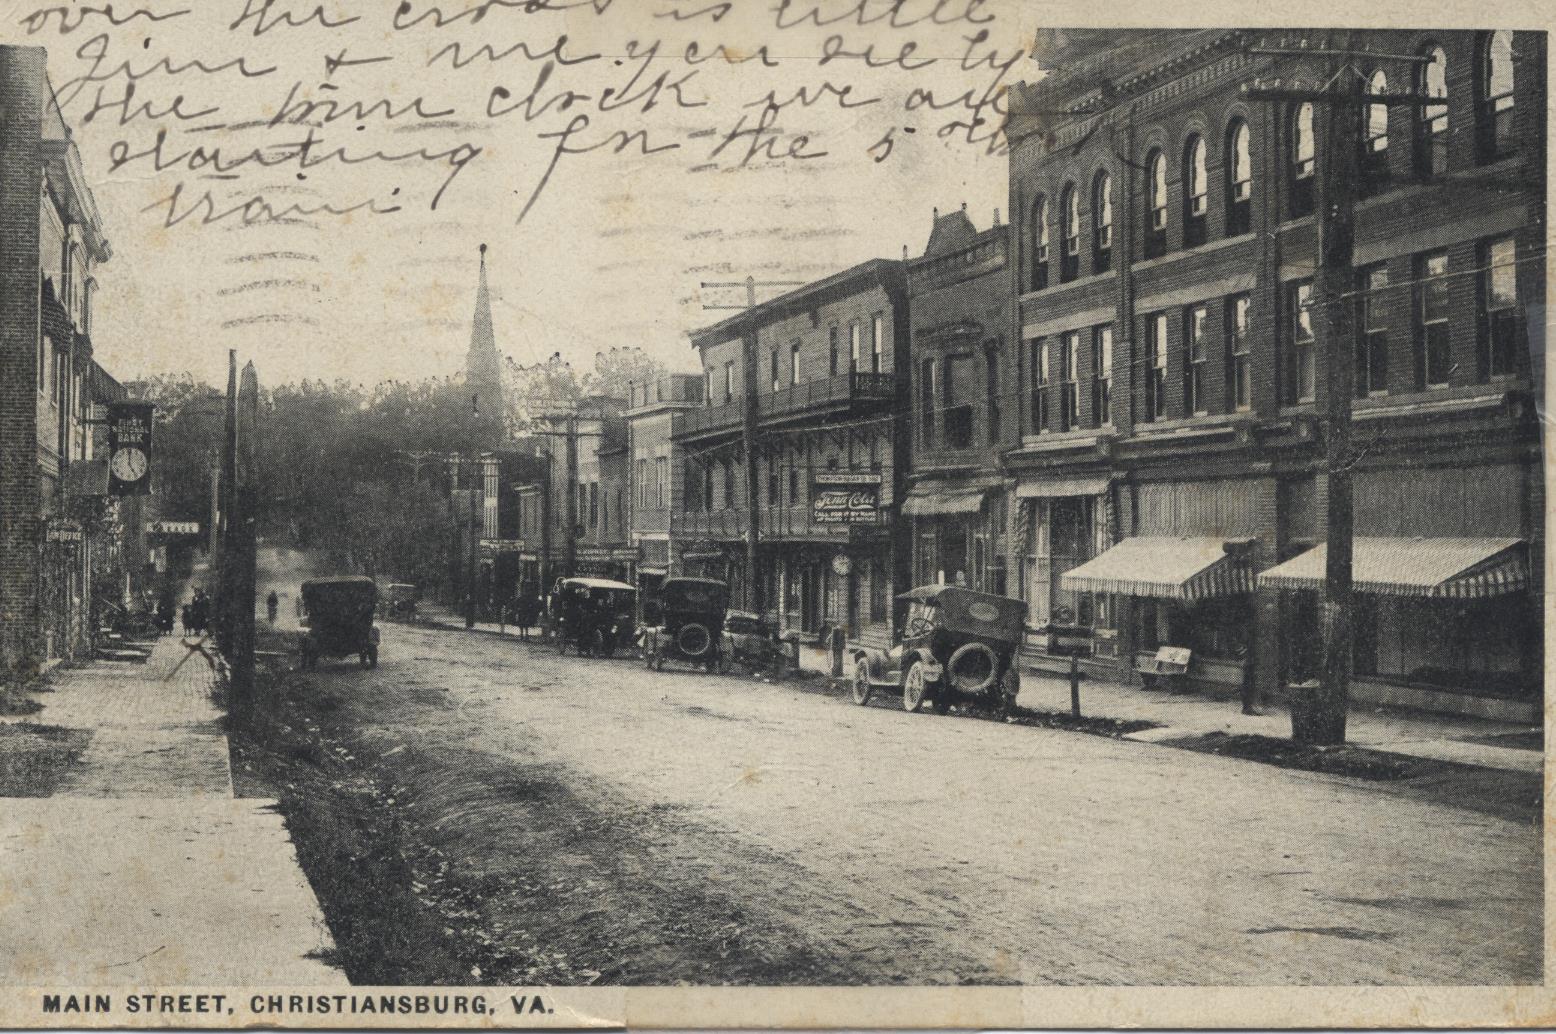 over the cross is little
Jim & me you see by
the bank clock we are
starting for the 5 o'clock
train
BANK
MAIN STREET, CHRISTIANSBURG, VA.